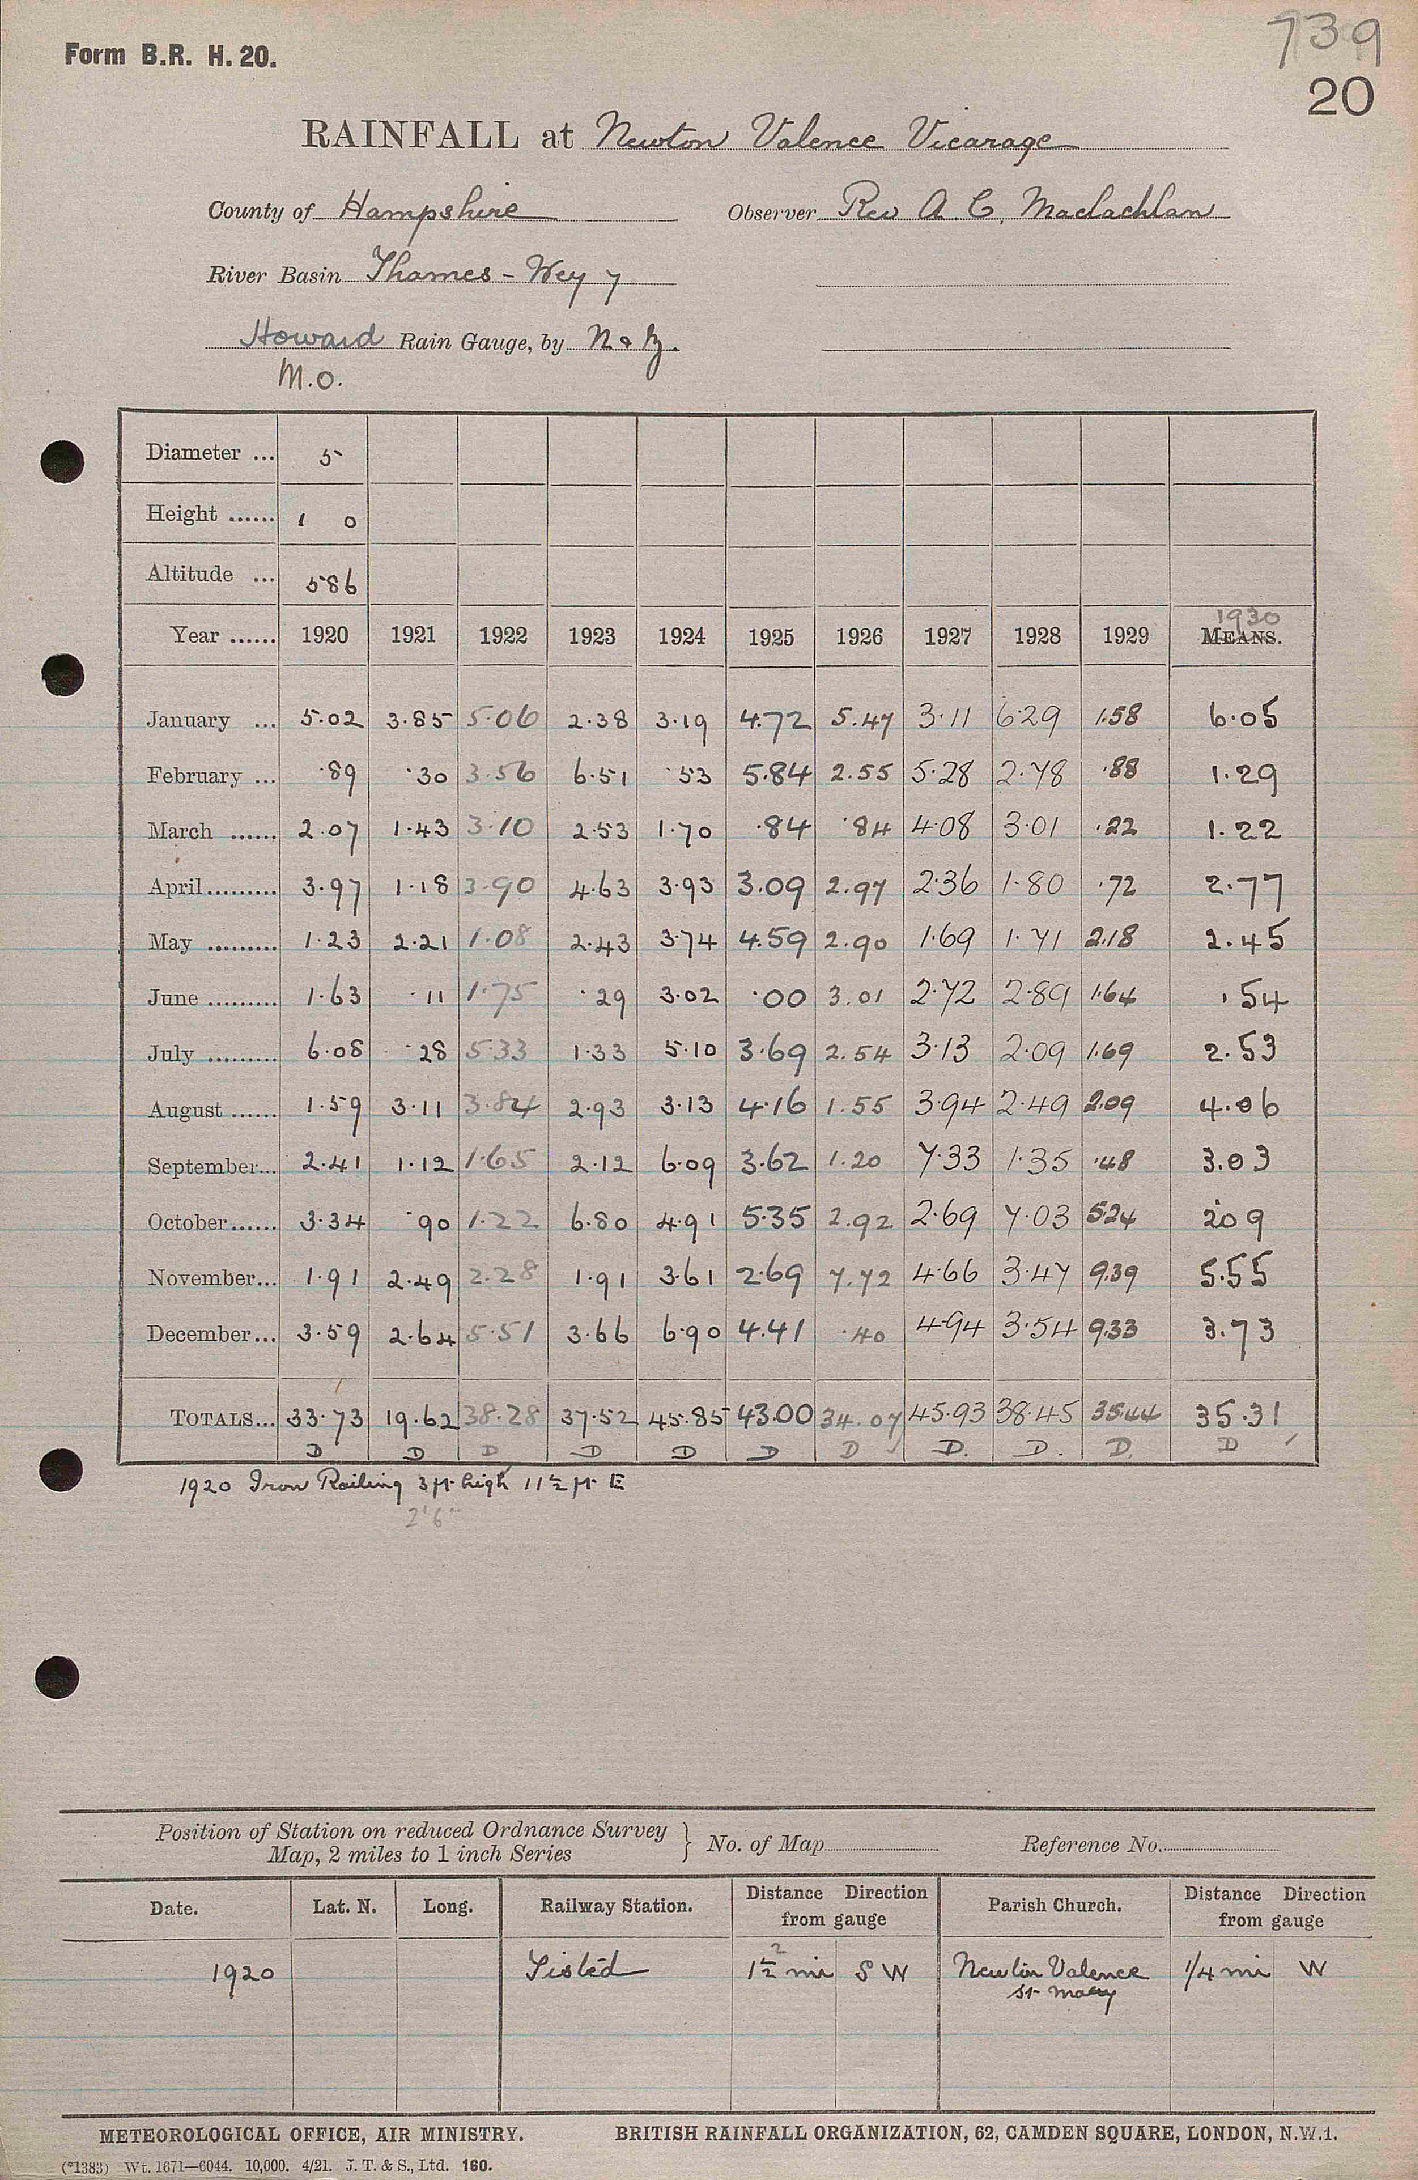 739
Form B.R. H. 20.
20
RAINFALL at Newton Valence Vicarage
County of Hampshire Observer Rev A. C. Maclachlan
River Basin Thames - Wey 7
Howard Rain Gauge, by N & Z.
M.O.
Diameter ... 5
Height ...... 1 0
Altitude ... 586
1930
Year ...... 1920 1921 1922 1923 1924 1925 1926 1927 1928 1929 MEANS.
January ... 5.02 3.85 5.06 2.38 3.19 4.72 5.47 3.11 6.29 1.58 6.05
February ... .89 .30 3.56 6.51 .53 5.84 2.55 5.28 2.78 .88 1.29
March ...... 2.07 1.43 3.10 2.53 1.70 .84 .84 4.08 3.01 .22 1.22
April......... 3.97 1.18 3.90 4.63 3.93 3.09 2.97 2.36 1.80 .72 2.77
May ......... 1.23 2.21 1.08 2.43 3.74 4.59 2.90 1.69 1.71 2.18 2.45
June ......... 1.63 .11 1.75 .29 3.02 .00 3.01 2.72 2.89 1.64 .54
July ......... 6.08 .28 5.33 1.33 5.10 3.69 2.54 3.13 2.09 1.69 2.53
August ...... 1.59 3.11 3.84 2.93 3.13 4.16 1.55 3.94 2.49 2.09 4.06
September... 2.41 1.12 1.65 2.12 6.09 3.62 1.20 7.33 1.35 .48 3.03
October...... 3.34 .90 1.22 6.80 4.91 5.35 2.92 2.69 7.03 5.24 2.09
November... 1.91 2.49 2.28 1.91 3.61 2.69 7.72 4.66 3.47 9.39 5.55
December... 3.59 2.64 5.51 3.66 6.90 4.41 .40 4.94 3.54 9.33 3.73
TOTALS... 33.73 19.62 38.28 37.52 45.85 43.00 34.07 45.93 38.45 35.44 35.31
D D D D D D D D. D. D. D
1920 Iron Railing 3 ft. high 11½ ft. E
2'6"
Position of Station on reduced Ordnance Survey
Map, 2 miles to 1 inch Series } No. of Map Reference No.
Date. Lat. N. Long. Railway Station. Distance Direction from gauge Parish Church. Distance Direction from gauge
2
1920 Tisted 1½ mi S W Newton Valence 1/4 mi W
St Mary
METEOROLOGICAL OFFICE, AIR MINISTRY. BRITISH RAINFALL ORGANIZATION, 62, CAMDEN SQUARE, LONDON, N.W.1.
(*1383) Wt. 1671—6044. 10,000. 4/21. J. T. & S., Ltd. 160.